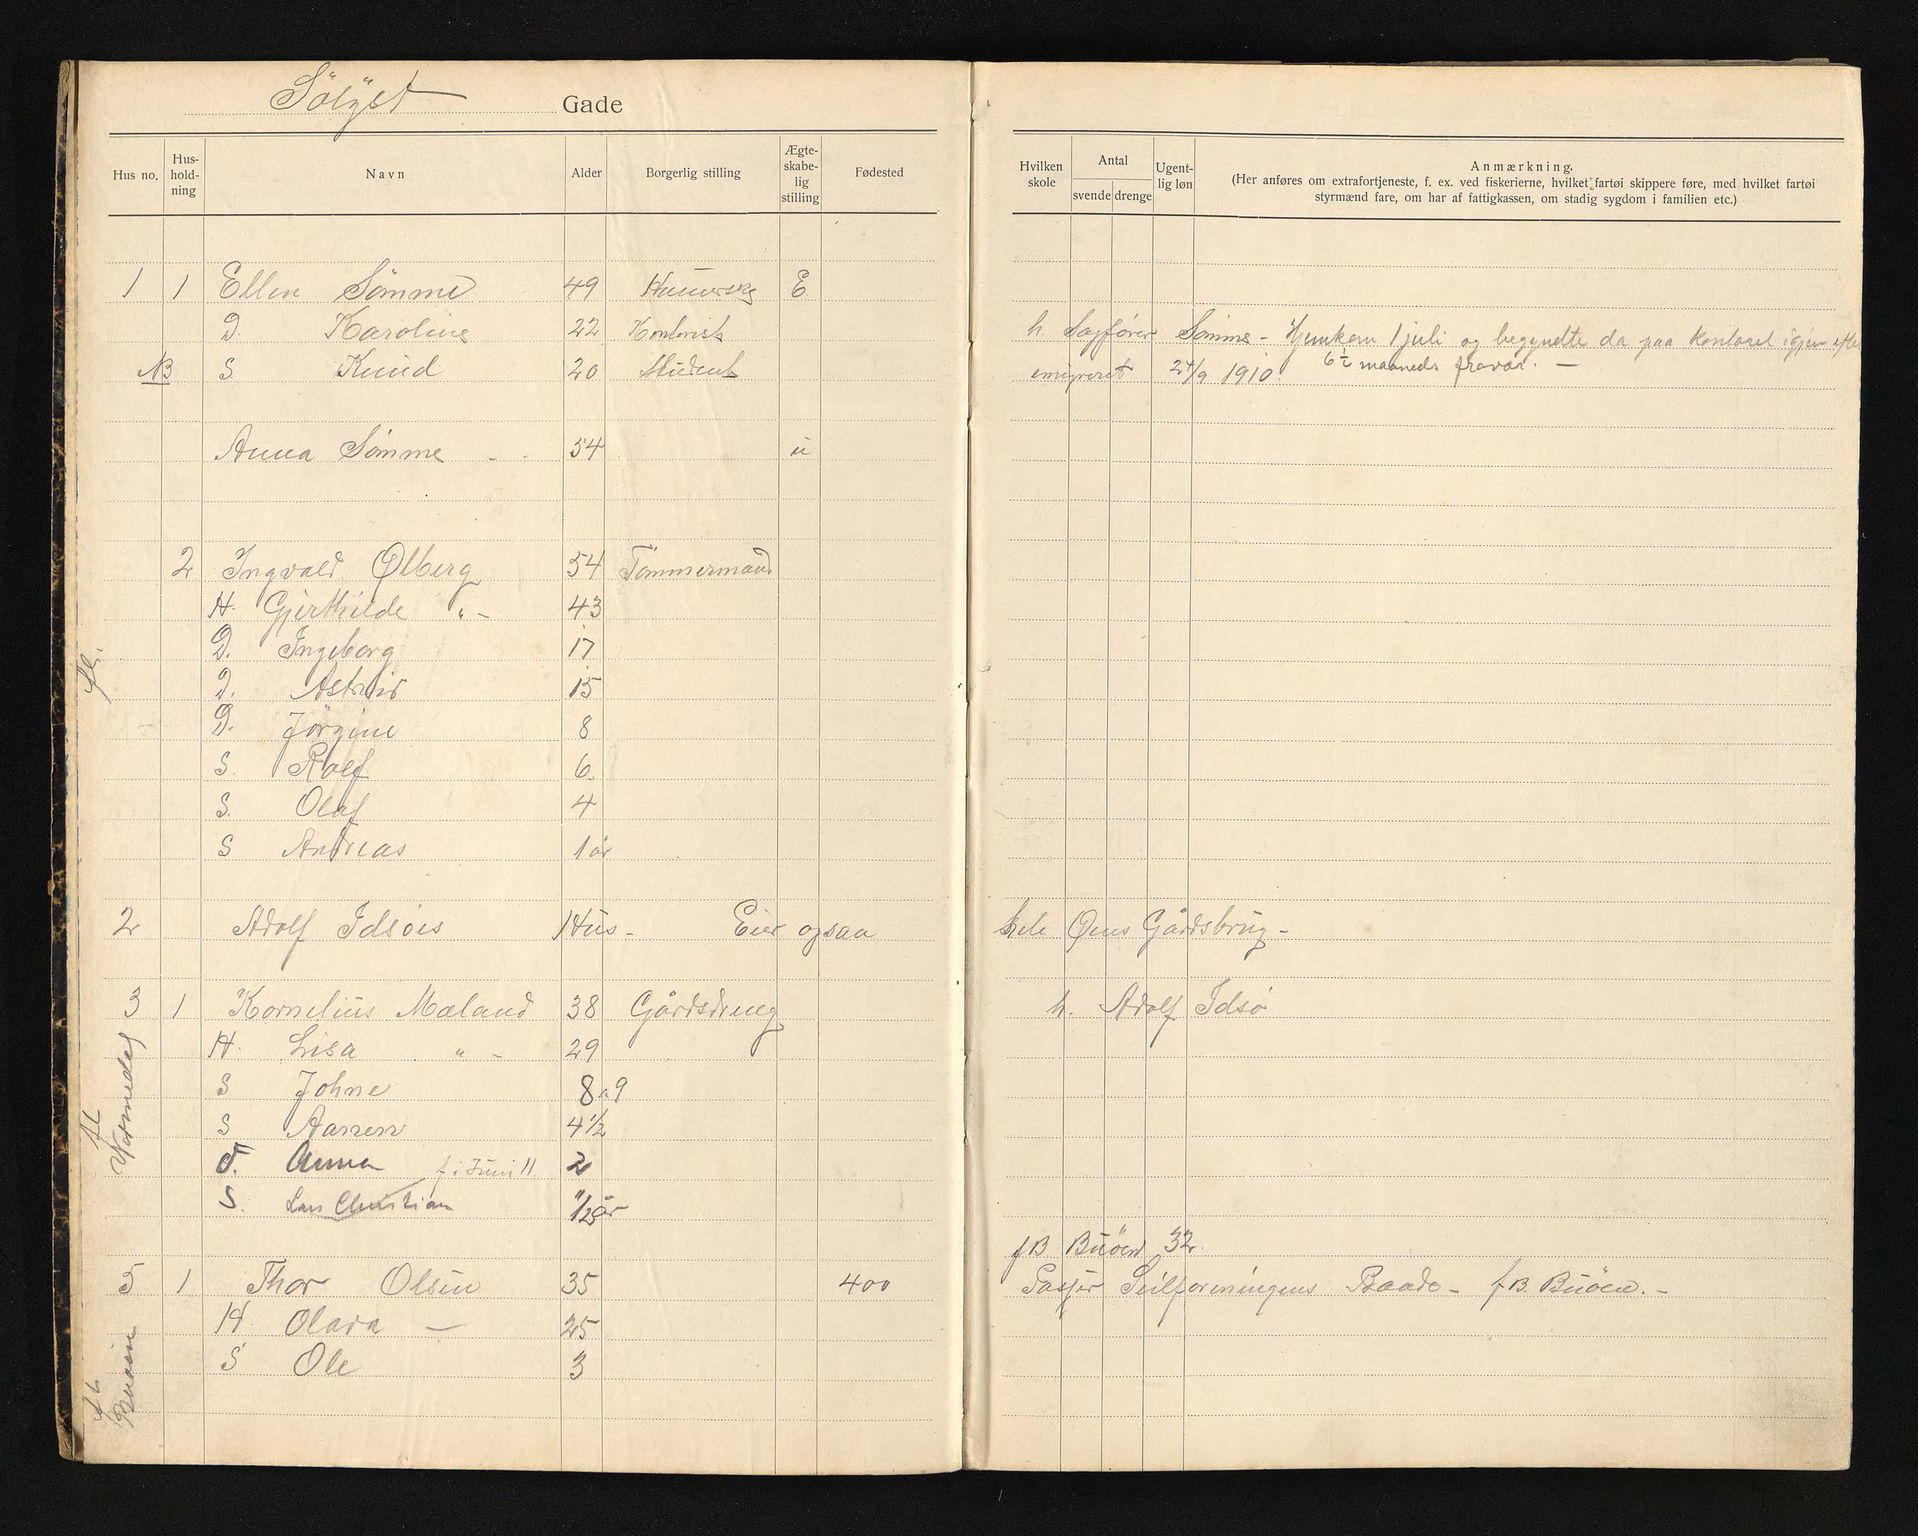 Sölyst Gade
Hus no. Hus-holdning Navn Alder Borgerlig stilling Ægte-skabe-lig stilling Fødested Hvilken skole Antal svende drenge Ugent-lig løn Anmærkning.
(Her anføres om extrafortjeneste, f. ex. ved fiskerierne, hvilket fartøi skippere føre, med hvilket fartøi
styrmænd fare, om har af fattigkassen, om stadig sygdom i familien etc.)
1 1 Ellen Sömme 49 E
D. Karoline 22 Kontorist h. Sagfører Sömme - Hjemkom 1 juli og begyndte da paa kontoret igjen efter
6½ maaneds fravær. —
NB S Knud 20 Student emigreret 24/9 1910.
Anna Sömme - - 54 u
2 Ingvald Ølberg 54 Tömmermand
H. Gjerthilde " - 43
D. Ingeborg 17
fl.
D. Astrid 15
D. Jörgine 8
S. Rolf 6
S. Olaf 4
S Andreas 1 år
2 Adolf Idsöes Hus - Eier ogsaa hele Øens Gårdsbrug -
3 1 Kornelius Mæland 38 Gårdsdreng h. Adolf Idsö
H. Lisa " - 29
S Johne 8 a 9
fl
S Aanen 4½
D. Anna f. i Juni 11 2
S. Lars Christian 1/2 år
fB Buöen 32.
5 1 Thor Olsen 35 400 Passer Seilforeningens Baade - fB. Buöen. -
H Olava — 25
S Ole 3
fl. Buöen